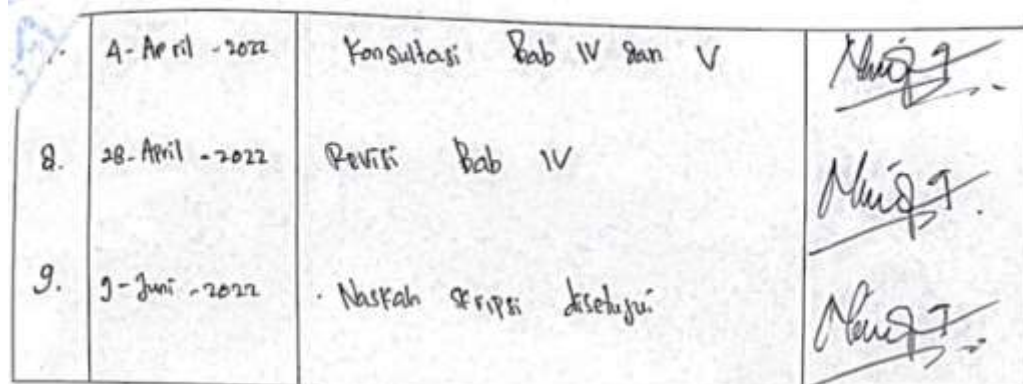 4-April-2022 Konsultasi Bab IV dan V
8. 28-April-2022 Revisi Bab IV
9. 9-Juni-2022 Naskah skripsi disetujui